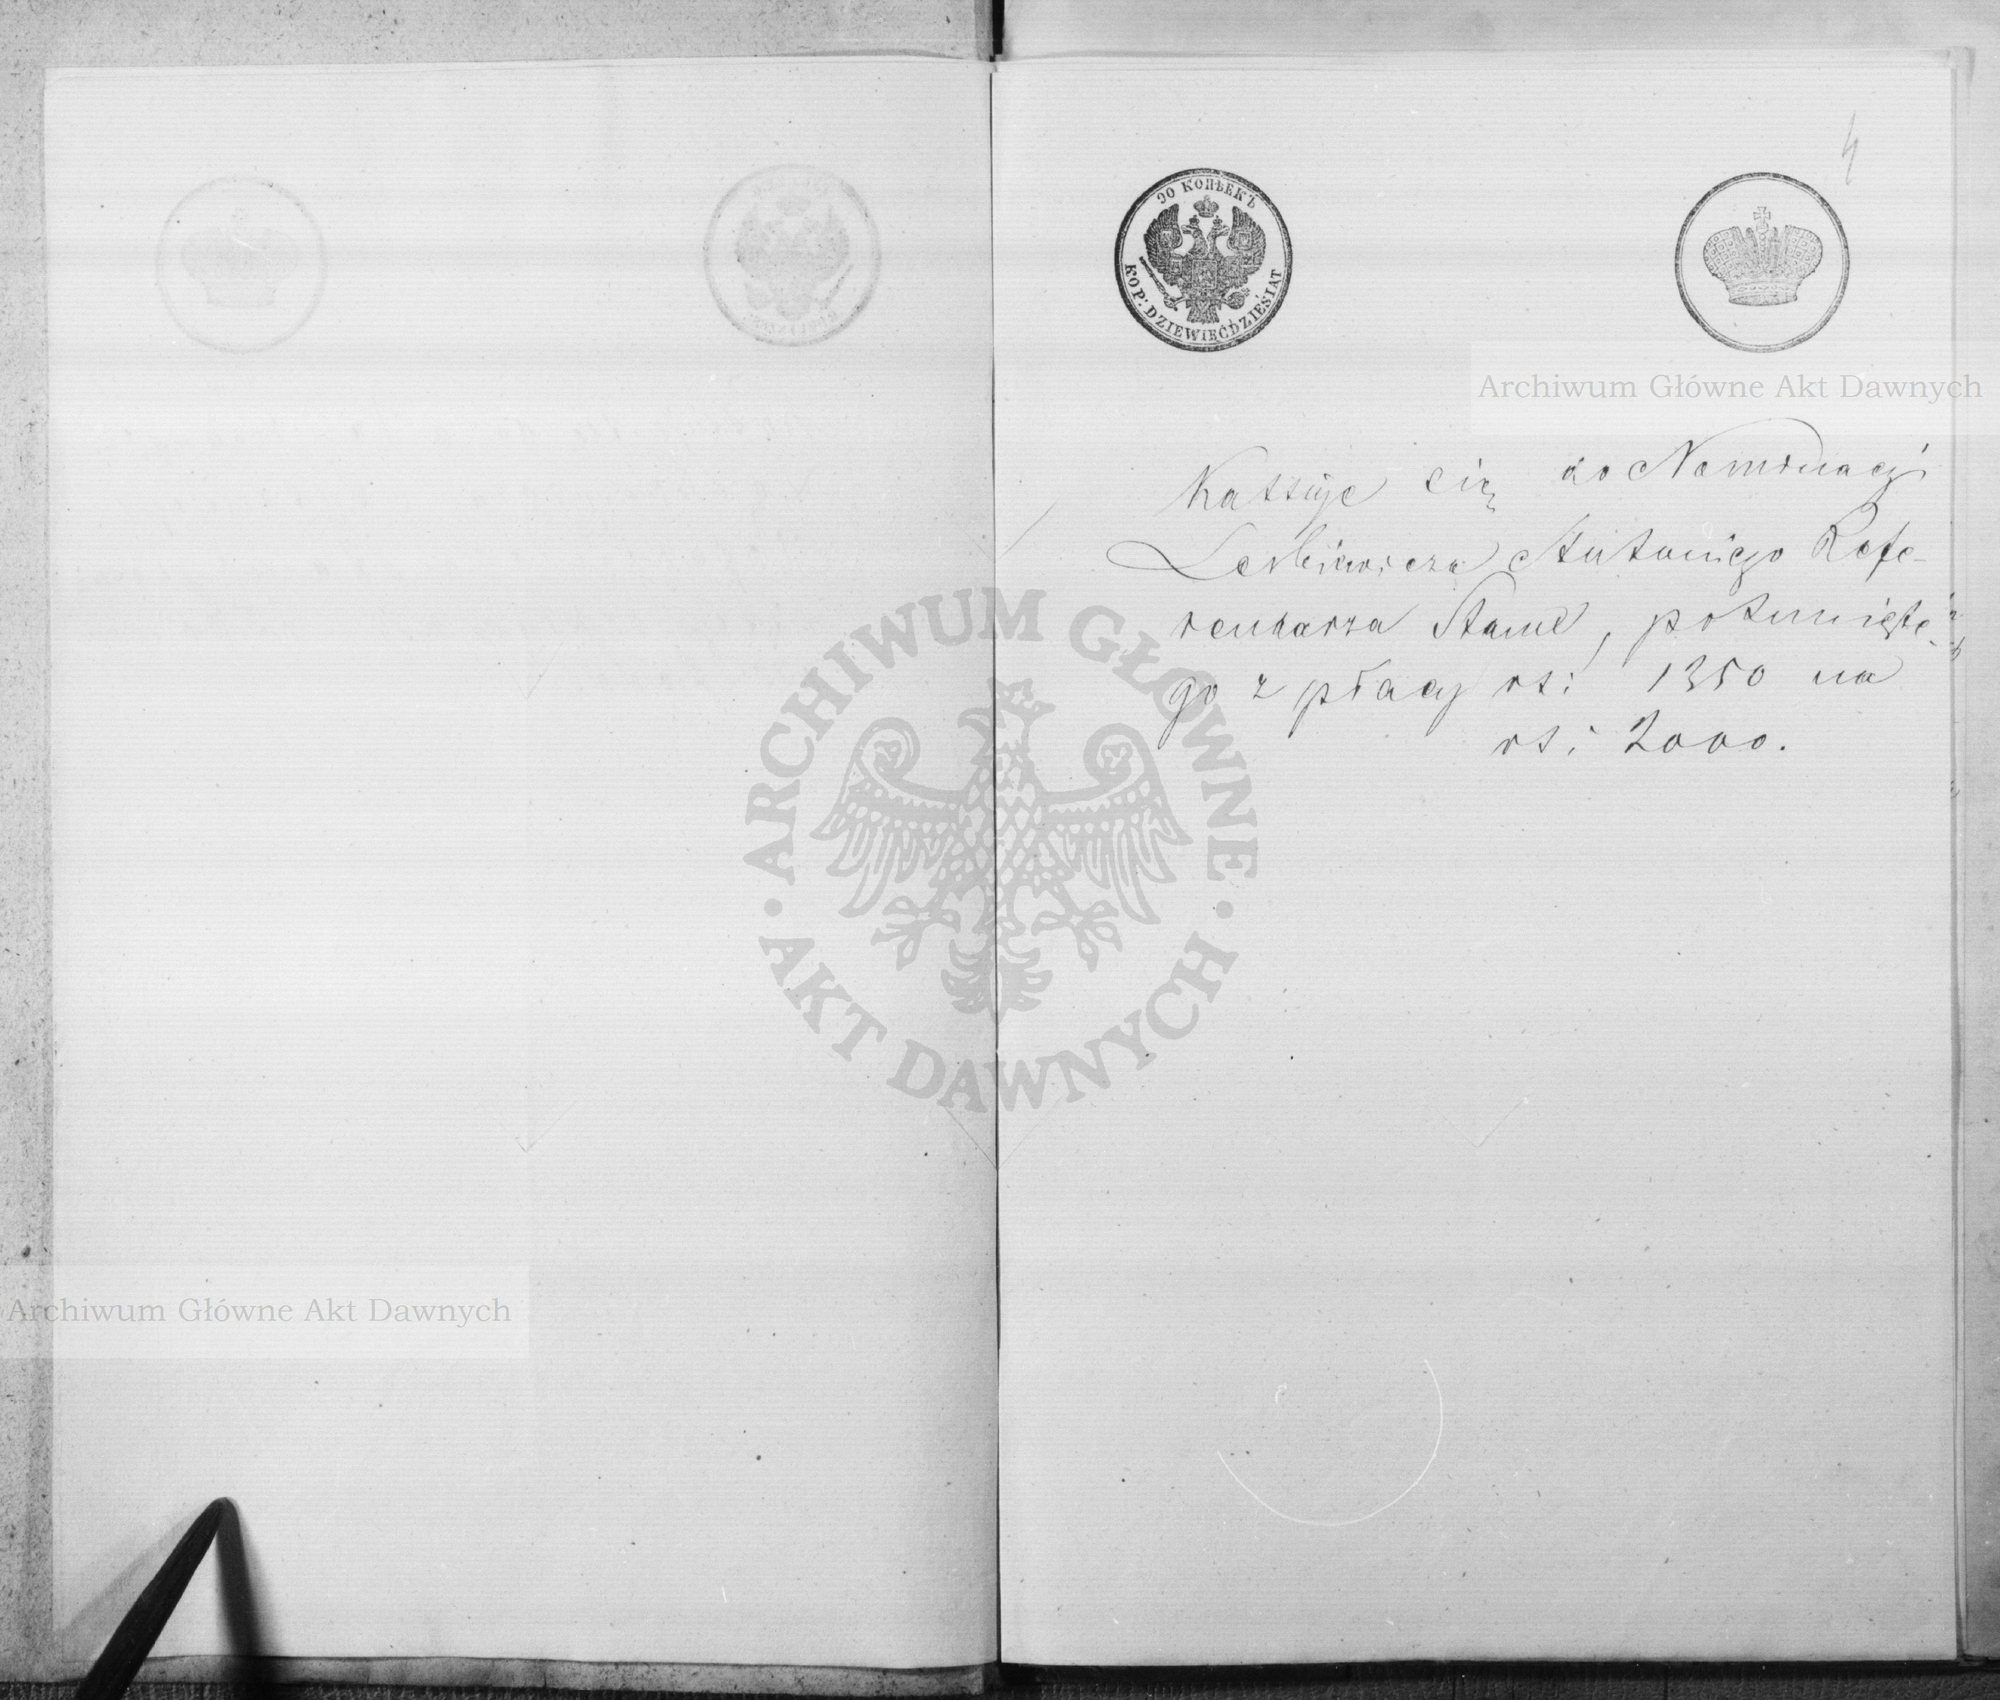 4
90 КОПѢЕКЪ
KOP: DZIEWIĘĆDZIESIĄT
Archiwum Główne Akt Dawnych
Kassuje się do Nominacyi
Antoniego Refe-
rendarza Stanu, posunięte-
go z płacy rs: 1350 na
rs: 2000.
ARCHIWUM GŁÓWNE
AKT DAWNYCH
Archiwum Główne Akt Dawnych